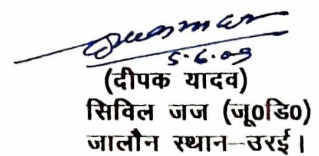 5.6.09
(दीपक यादव)
सिविल जज (जू०डि०)
जालौन स्थान–उरई।